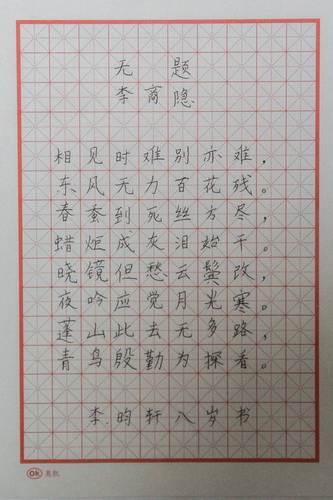 无题
李商隐
相见时难别亦难，
东风无力百花残。
春蚕到死丝方尽，
蜡炬成灰泪始干。
晓镜但愁云鬓改，
夜吟应觉月光寒。
蓬山此去无多路，
青鸟殷勤为探看。
李昀轩八岁书
Ok 奥凯